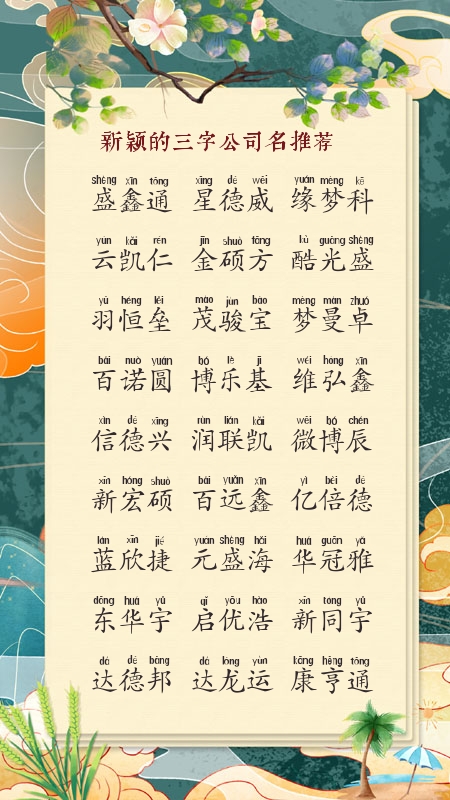 新颖的三字公司名推荐
shèng xīn tōng xīng dé wēi yuán mèng kē
盛鑫通 星德威 缘梦科
yún kǎi rén jīn shuò fāng kù guāng shèng
云凯仁 金硕方 酷光盛
yǔ héng lěi mào jùn bǎo mèng màn zhuó
羽恒垒 茂骏宝 梦曼卓
bǎi nuò yuán bó lè jī wéi hóng xīn
百诺圆 博乐基 维弘鑫
xìn dé xīng rùn lián kǎi wēi bó chén
信德兴 润联凯 微博辰
xīn hóng shuò bǎi yuǎn xīn yì bèi dé
新宏硕 百远鑫 亿倍德
lán xīn jié yuán shèng hǎi huá guān yǎ
蓝欣捷 元盛海 华冠雅
dōng huá yǔ qǐ yōu hào xīn tóng yǔ
东华宇 启优浩 新同宇
dá dé bāng dá lóng yùn kāng hēng tōng
达德邦 达龙运 康亨通